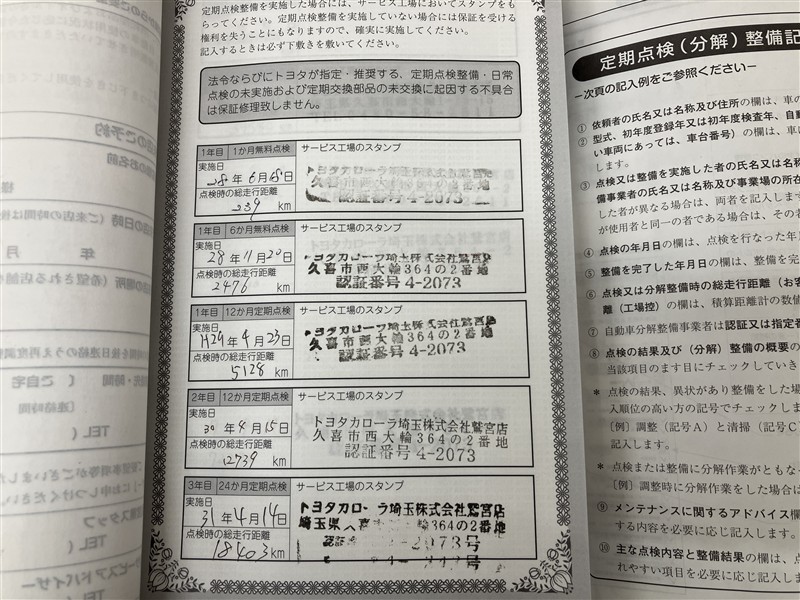 定期点検整備を実施した場合には、サービス工場においてスタンプをも
らってください。定期点検整備を実施していない場合には保証を受ける
権利を失うことにもなりますので、確実に実施してください。
記入するときは必ず下敷きを敷いてください。
法令ならびにトヨタが指定・推奨する、定期点検整備・日常
点検の未実施および定期交換部品の未交換に起因する不具合
は保証修理致しません。
1年目 1か月無料点検 サービス工場のスタンプ
実施日
28年6月15日
点検時の総走行距離
239 km
トヨタカローラ埼玉株式会社鷲宮店
久喜市西大輪364の2番地
認証番号4-2073
1年目 6か月無料点検 サービス工場のスタンプ
実施日
28年11月20日
点検時の総走行距離
2476 km
トヨタカローラ埼玉株式会社鷲宮店
久喜市西大輪364の2番地
認証番号4-2073
1年目 12か月定期点検 サービス工場のスタンプ
実施日
H29年4月23日
点検時の総走行距離
5128 km
トヨタカローラ埼玉株式会社鷲宮店
久喜市西大輪364の2番地
認証番号4-2073
2年目 12か月定期点検 サービス工場のスタンプ
実施日
30年4月15日
点検時の総走行距離
12739 km
トヨタカローラ埼玉株式会社鷲宮店
久喜市西大輪364の2番地
認証番号4-2073
3年目 24か月定期点検 サービス工場のスタンプ
実施日
31年4月14日
点検時の総走行距離
18403 km
トヨタカローラ埼玉株式会社鷲宮店
埼玉県久喜 輪364の2番地
2073号
定期点検(分解)整備記
ー次頁の記入例をご参照くださいー
① 依頼者の氏名又は名称及び住所の欄は、車の
② 型式、初年度登録年又は初年度検査年、自動
い車両にあっては、車台番号)の欄は、車
します。
③ 点検又は整備を実施した者の氏名又は名称
備事業者の氏名又は名称及び事業場の所在
した者が異なる場合は、両者を記入します
が使用者と同一の者である場合は、その者
④ 点検の年月日の欄は、点検を行なった年月
⑤ 整備を完了した年月日の欄は、整備を完
⑥ 点検又は分解整備時の総走行距離(お客
離(工場控)の欄は、積算距離計の数値
⑦ 自動車分解整備事業者は認証又は指定番
⑧ 点検の結果及び(分解)整備の概要の
当該項目のます目にチェックしていき
* 点検の結果、異状があり整備をした場
入順位の高い方の記号でチェックしま
〔例〕調整(記号A)と清掃(記号C
記入します。
* 点検または整備に分解作業がともな
〔例〕調整時に分解作業をした場合は
⑨ メンテナンスに関するアドバイス欄
する内容を必要に応じ記入します。
⑩ 主な点検内容と整備結果の欄は、点
れやすい項目を必要に応じ記入します